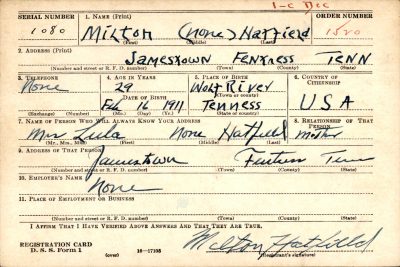 1-C Dec
SERIAL NUMBER 1. NAME (Print) ORDER NUMBER
1080 Milton (None) Hatfield 1520
(First) (Middle) (Last)
2. ADDRESS (Print)
Jamestown Fentress Tenn
(Number and street or R. F. D. number) (Town) (County) (State)
3. TELEPHONE 4. AGE IN YEARS 5. PLACE OF BIRTH 6. COUNTRY OF CITIZENSHIP
None 29 Wolf River
DATE OF BIRTH (Town or county)
Feb 16 1911 Tenness USA
(Exchange) (Number) (Mo.) (Day) (Yr.) (State or country)
7. NAME OF PERSON WHO WILL ALWAYS KNOW YOUR ADDRESS 8. RELATIONSHIP OF THAT PERSON
Mrs Lula None Hatfield Mother
(Mr., Mrs., Miss) (First) (Middle) (Last)
9. ADDRESS OF THAT PERSON
Jamestown Fentress Tenn
(Number and street or R. F. D. number) (Town) (County) (State)
10. EMPLOYER'S NAME
None
11. PLACE OF EMPLOYMENT OR BUSINESS
(Number and street or R. F. D. number) (Town) (County) (State)
I AFFIRM THAT I HAVE VERIFIED ABOVE ANSWERS AND THAT THEY ARE TRUE.
REGISTRATION CARD
D. S. S. Form 1 (over) 16—17105 Milton Hatfield
(Registrant's signature)